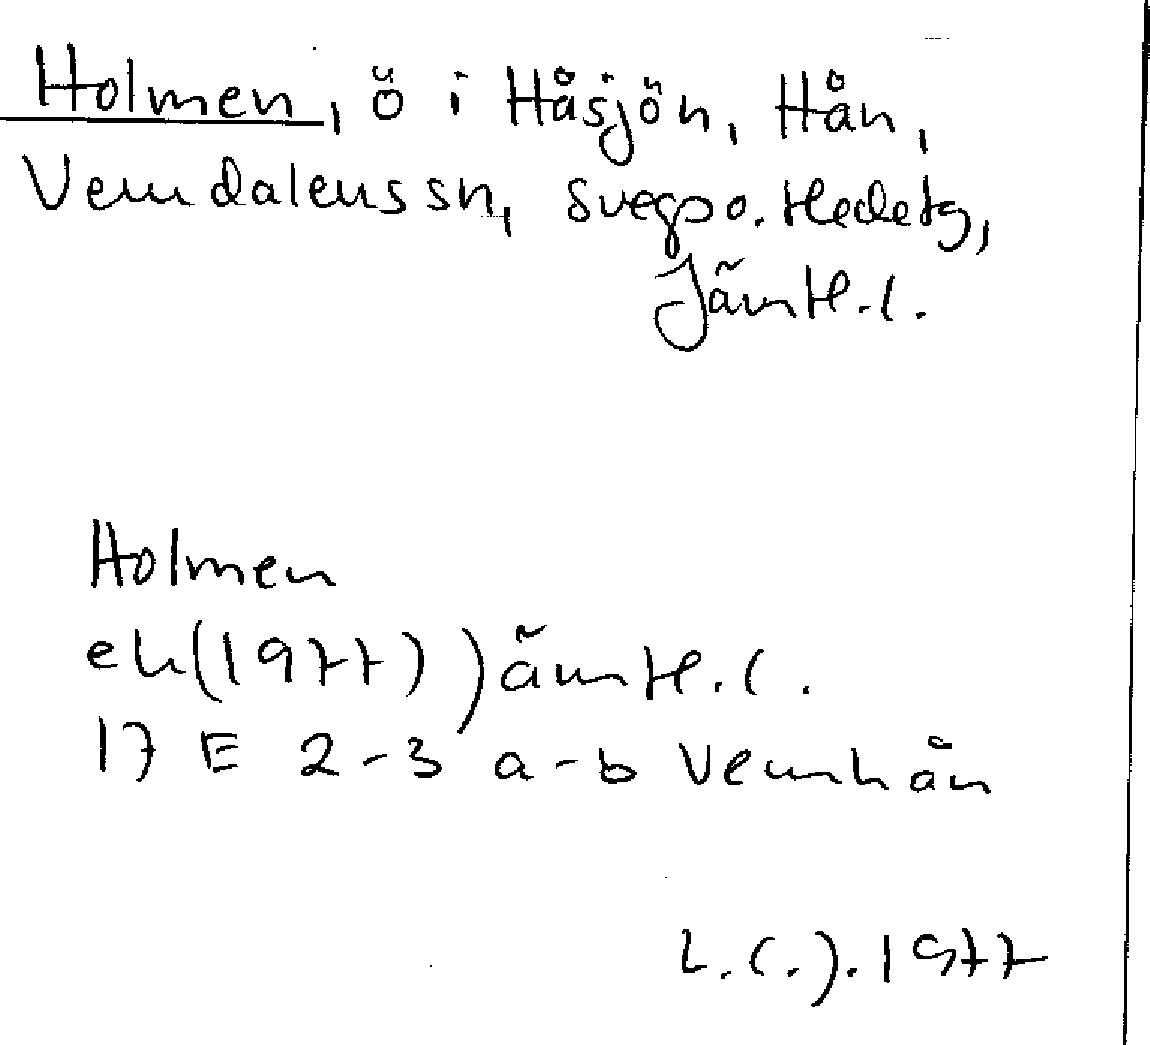 Holmen, ö i Håsjön, Hån,
Vemdalens sn, Svegs po. Hedetg,
Jämtl. l.
Holmen
ek (1977) Jämtl. l.
17 E 2-3 a-b Vemhån
1977